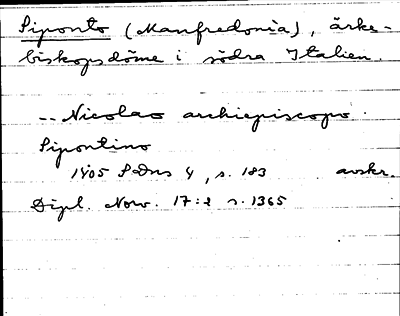 Siponto (Manfredonia), ärke-
biskopsdöme i södra Italien.
-- Nicolao archiepiscopo
Sipontino
1405 SDns 4, s. 183 avskr.
Dipl. Norv. 17:2 s. 1365